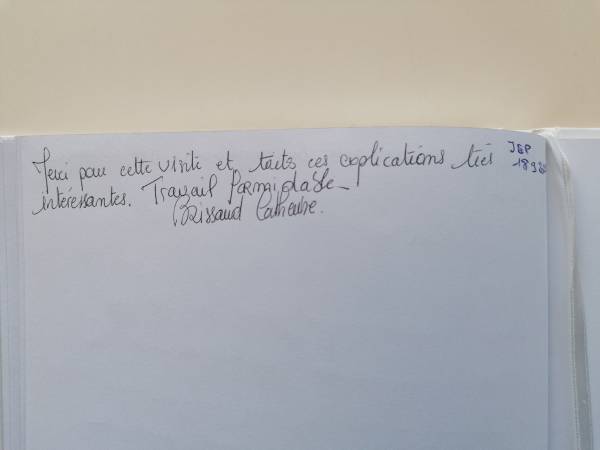 Merci pour cette visite et toutes ces explications très
intéressantes. Travail formidable_
Brissaud Catherine.
JEP